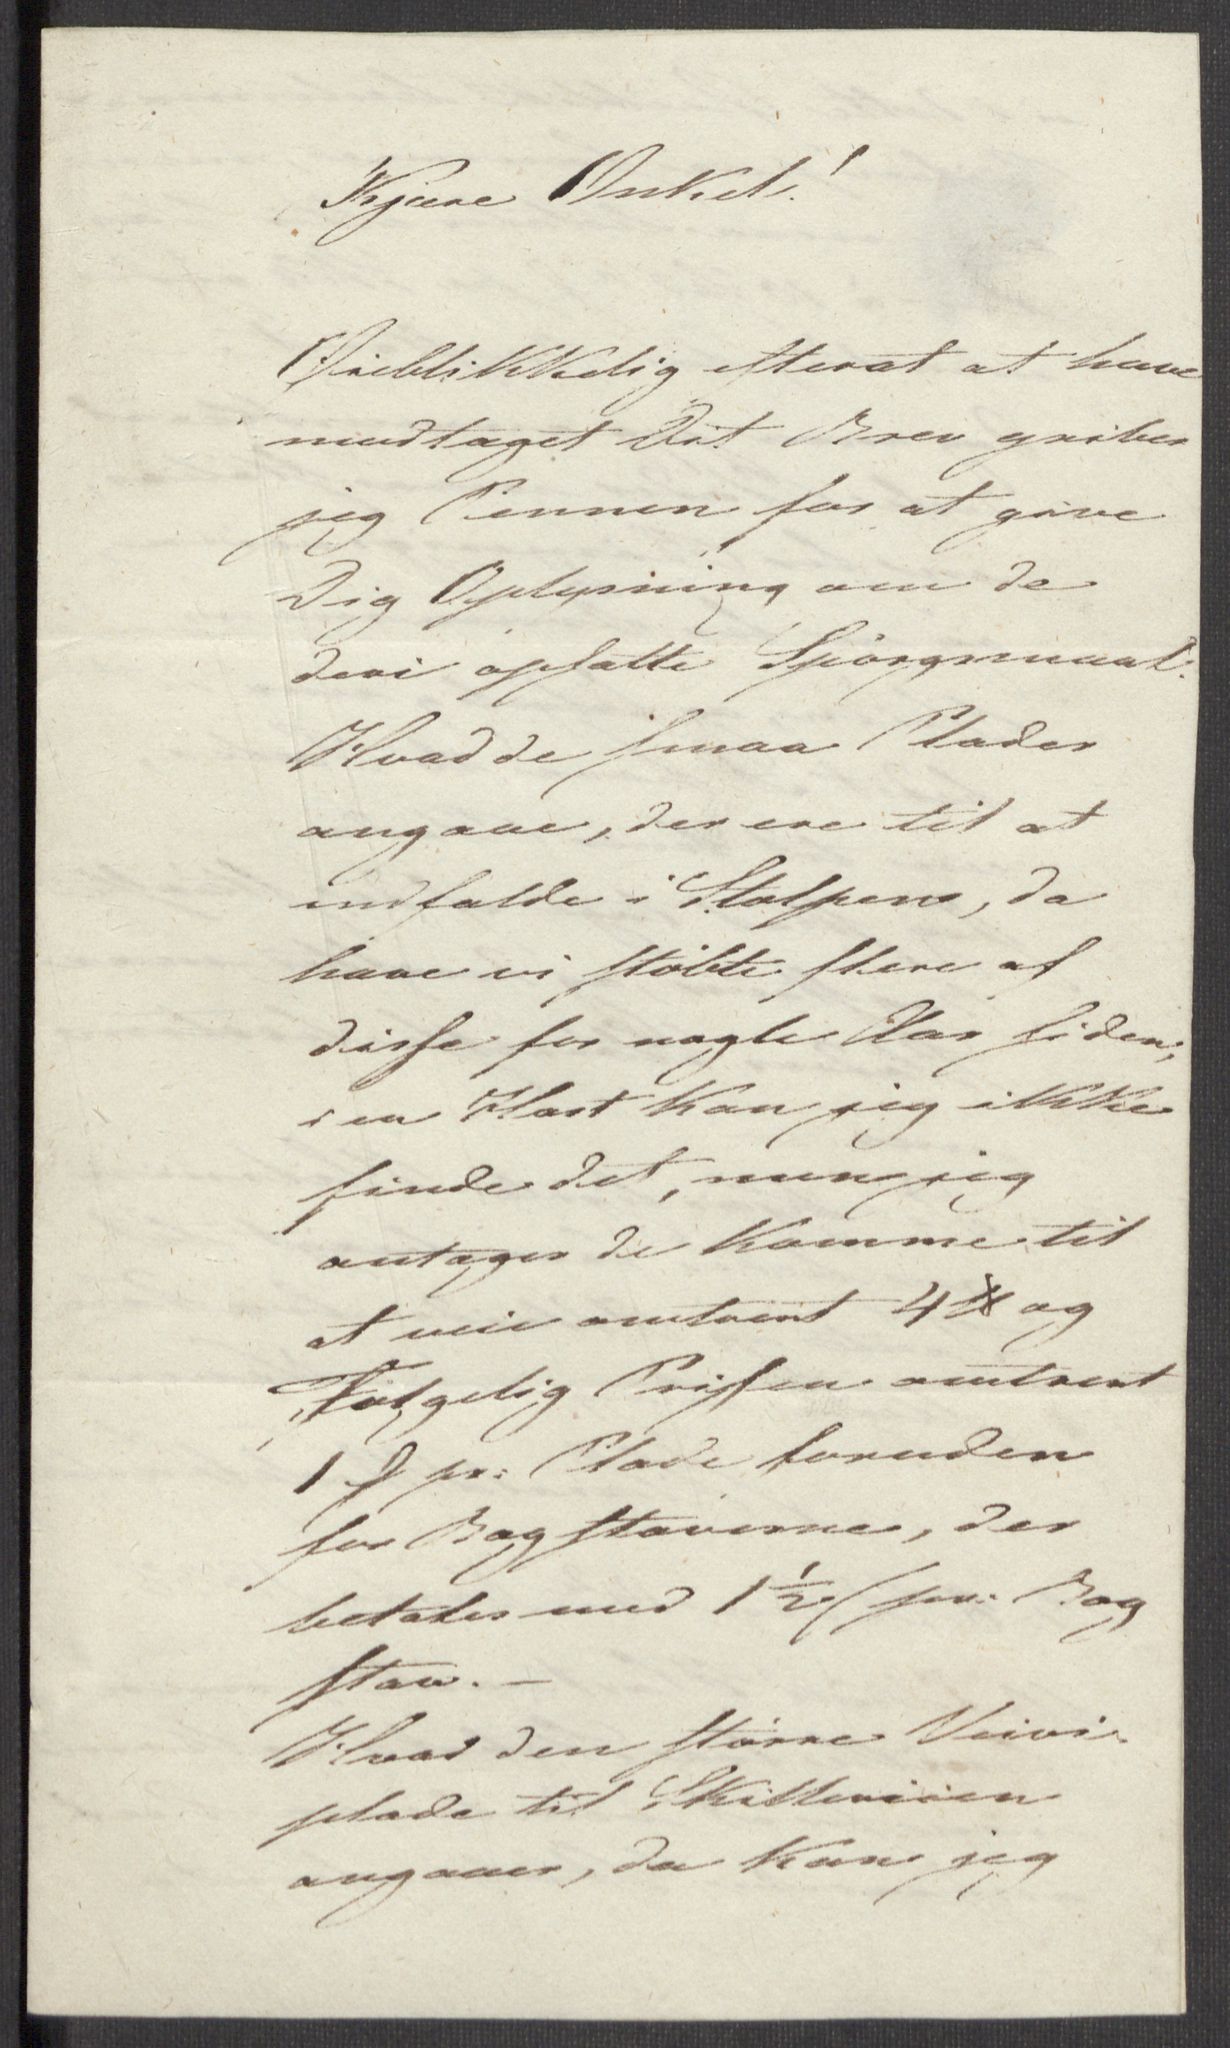 Kjære Onkel!
Øieblikkelig efterat at have
modtaget Dit Brev griber
jeg Pennen for at give
Dig Oplysning om de
deri opsatte Spörgsmaal.
Hvad de smaa Plader
angaae, der ere til at
indfalde i Stolpen, da
have vi stöbte flere af
disse for nogle Aar siden;
i en Hast kan jeg ikke
finde det, men jeg
antager de komme til
at veie omtrent 4 ℔ og
Fölgelig Prissen omtrent
1 pr: Plade foruden
for Bogstaverne, der
betales med 1½ ß pr: Bog
stav. –
Hvad den större Veivi-
plade til Skilleveien
angaaer, da kan jeg